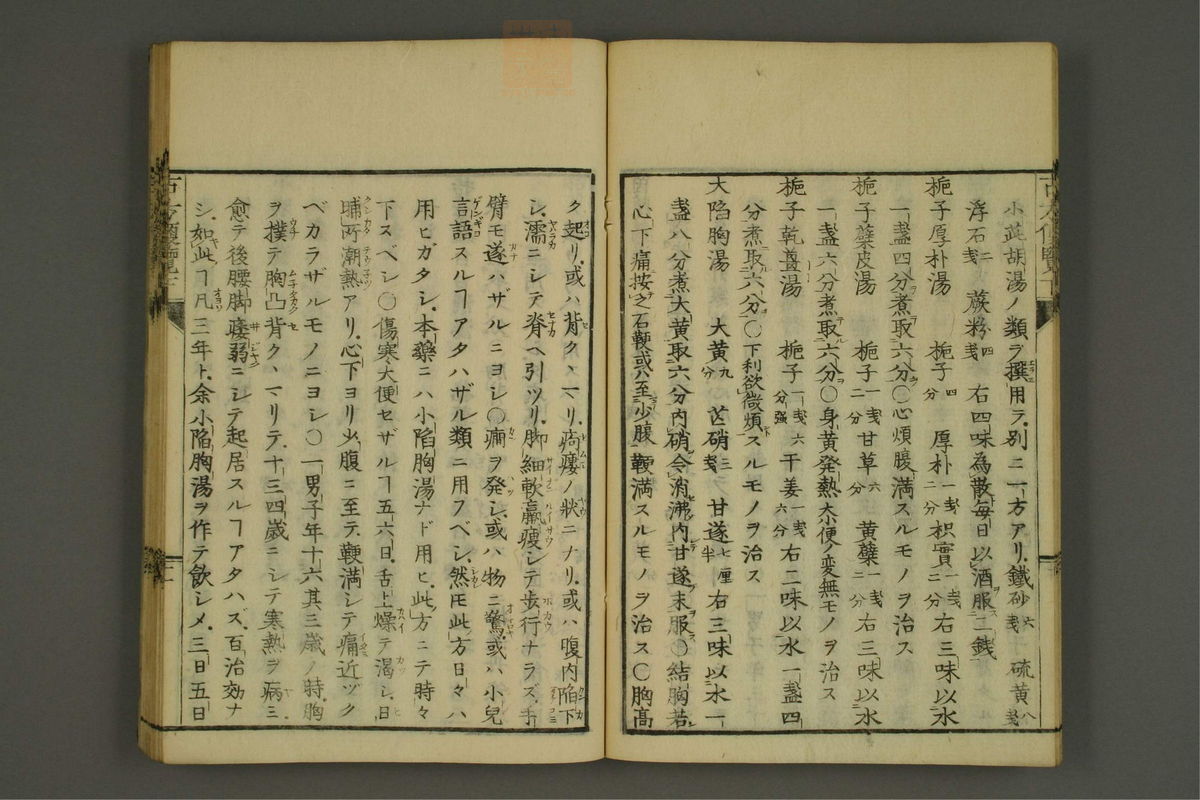 小茈胡湯ノ類ヲ撰用ラ.別ニ一方アリ.鐵砂六戔硫黄八戔
浮石二戔 蕨粉四戔 右四味為散毎日以酒服二錢
梔子厚朴湯 梔子四分 厚朴一戔二分枳實一戔二分右三味以水
一盞四分煮取六分〇心煩腹満スルモノヲ治ス
梔子蘗皮湯 梔子一戔二分甘草六分 黄蘗一戔二分右三味以水
一盞六分煮取六分〇身黄発熱大便ノ変無モノヲ治ス
梔子乾薑湯 梔子一戔六分强干姜一戔六分右二味以水一盞四
分煮取六分〇下利欲微煩スルモノヲ治ス
大陷胸湯 大黄九分 芒硝三戔 甘遂七厘半右三味以水一
盞八分煮大黄取六分内硝令消沸内甘遂末服〇結胸若
心下痛按之石鞕或ハ至少腹鞕満スルモノヲ治ス〇胸高
ク起リ.或ハ背クヽマリ.痀瘻ノ狀ニナリ.或ハ腹内陷下
シ.濡ニシテ脊ヘ引ツリ.脚細軟羸痩シテ歩行ナラズ.手
臂モ遂ハザルニヨシ〇癇ヲ発シ.或ハ物ニ驚.或ハ小兒
言語スルヿアタハザル類ニ用フベシ.然𪜈此方日々ハ
用ヒガタシ.本藥ニハ小陷胸湯ナド用ヒ.此方ニテ時々
下スベシ〇傷寒大便セザルヿ五六日.舌上燥テ渇シ.日
晡所潮熱アリ.心下ヨリ少腹ニ至テ.鞕満シテ痛近ヅク
ベカラザルモノニヨシ〇一男子年十六其三歳ノ時.胸
ヲ撲テ胸凸背クヽマリテ.十三四歳ニシテ寒熱ヲ病ミ.
愈テ後腰脚痿弱ニシテ起居スルヿアタハズ.百治効ナ
シ.如此ヿ凡三年ト.余小陷胸湯ヲ作テ飲シメ.三日五日